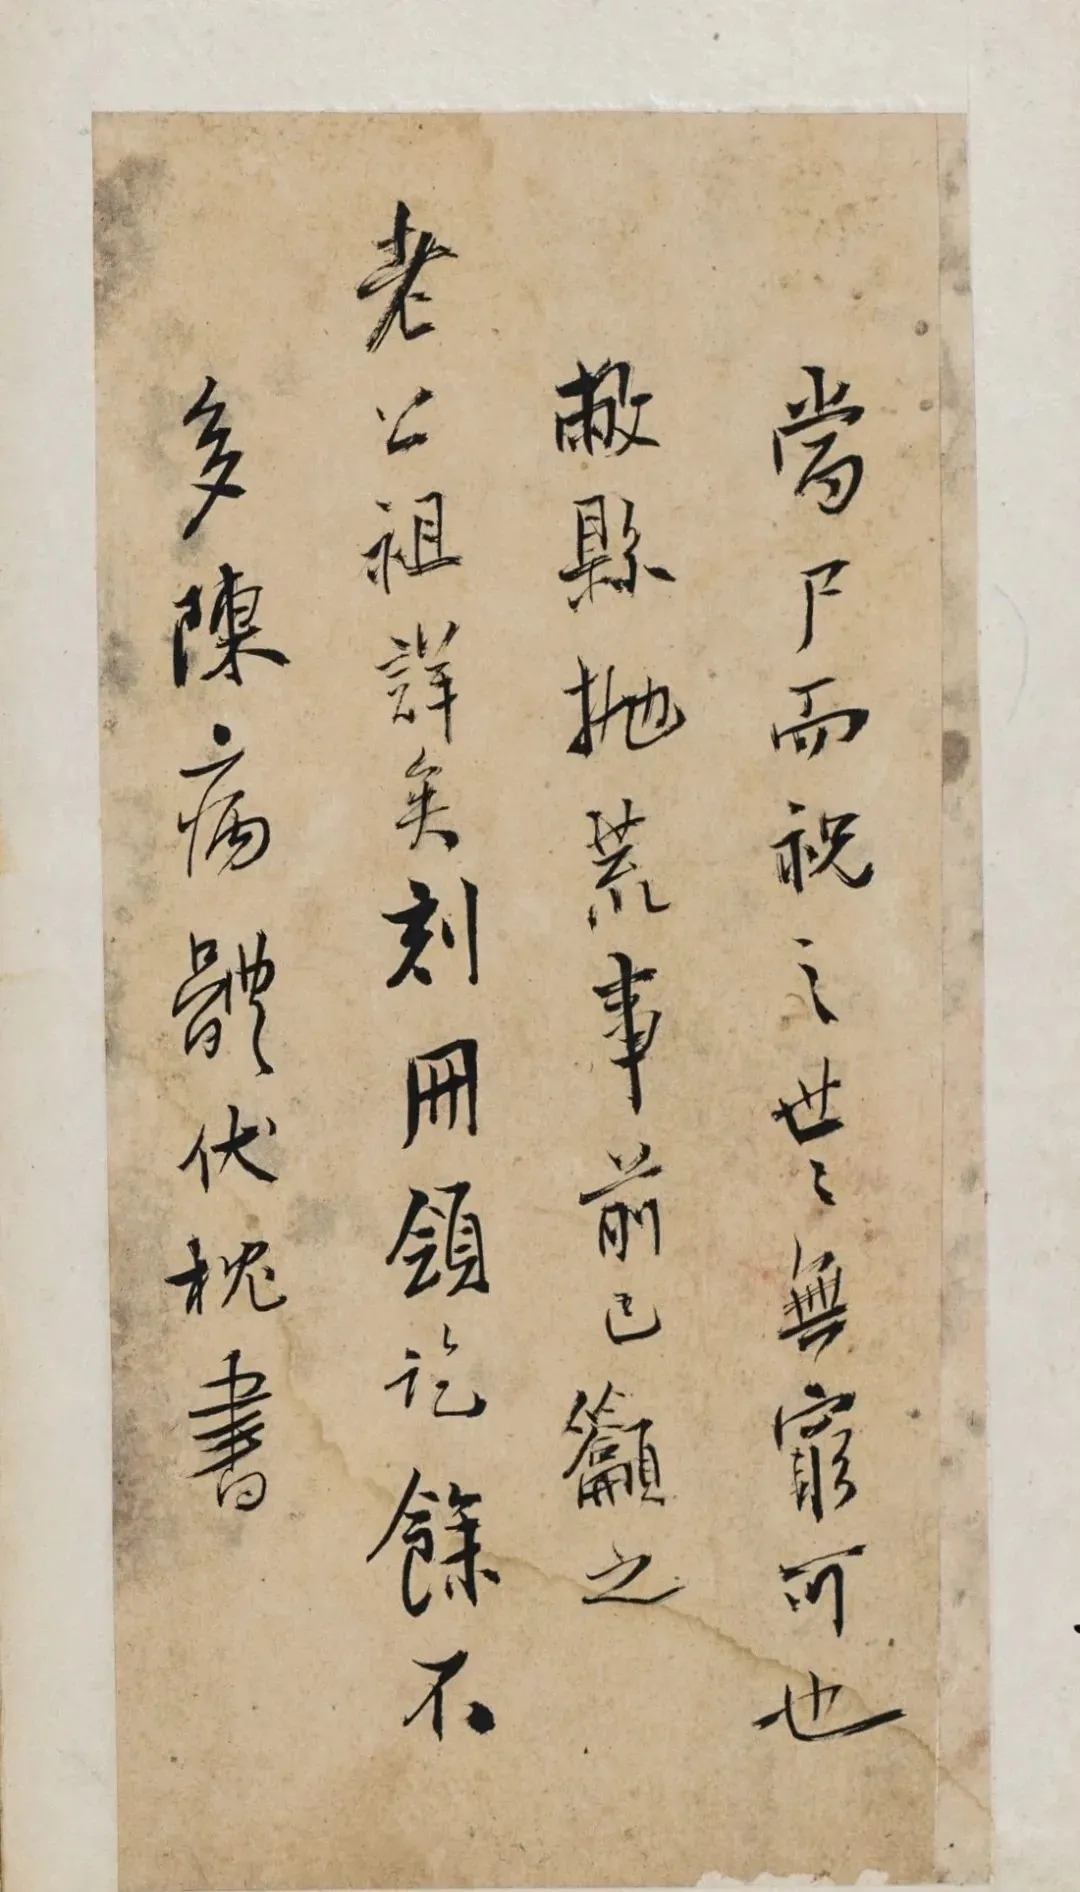 當尸而祝之世世無窮可也
敝縣拋荒事前已籲之
老公祖詳矣刻冊領訖餘不
多陳病體伏枕書